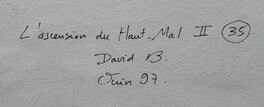 L'ascension du Haut-Mal II 35
David B.
Juin 97.